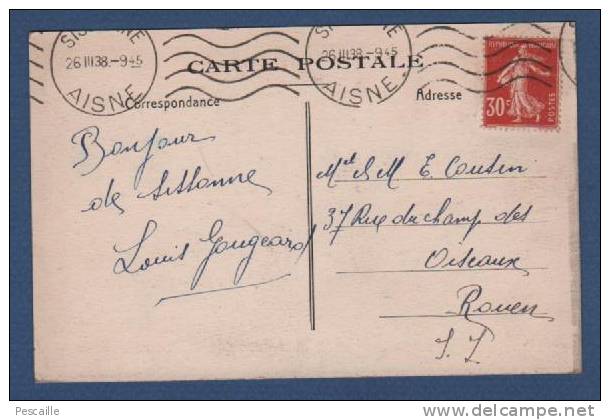 SISSONNE
26 III 38.-9 45
AISNE
SISSONNE
26 III 38.-9 45
AISNE
CARTE POSTALE
Correspondance
Adresse
REPUBLIQUE FRANÇAISE
30 c
POSTES
Bonjour
de Sissonne
Louis Gougeard
Me & M E. Cousin
37 Rue du champ des
Oiseaux
Rouen
S. I.
Pescaille
http://www.delcampe.net